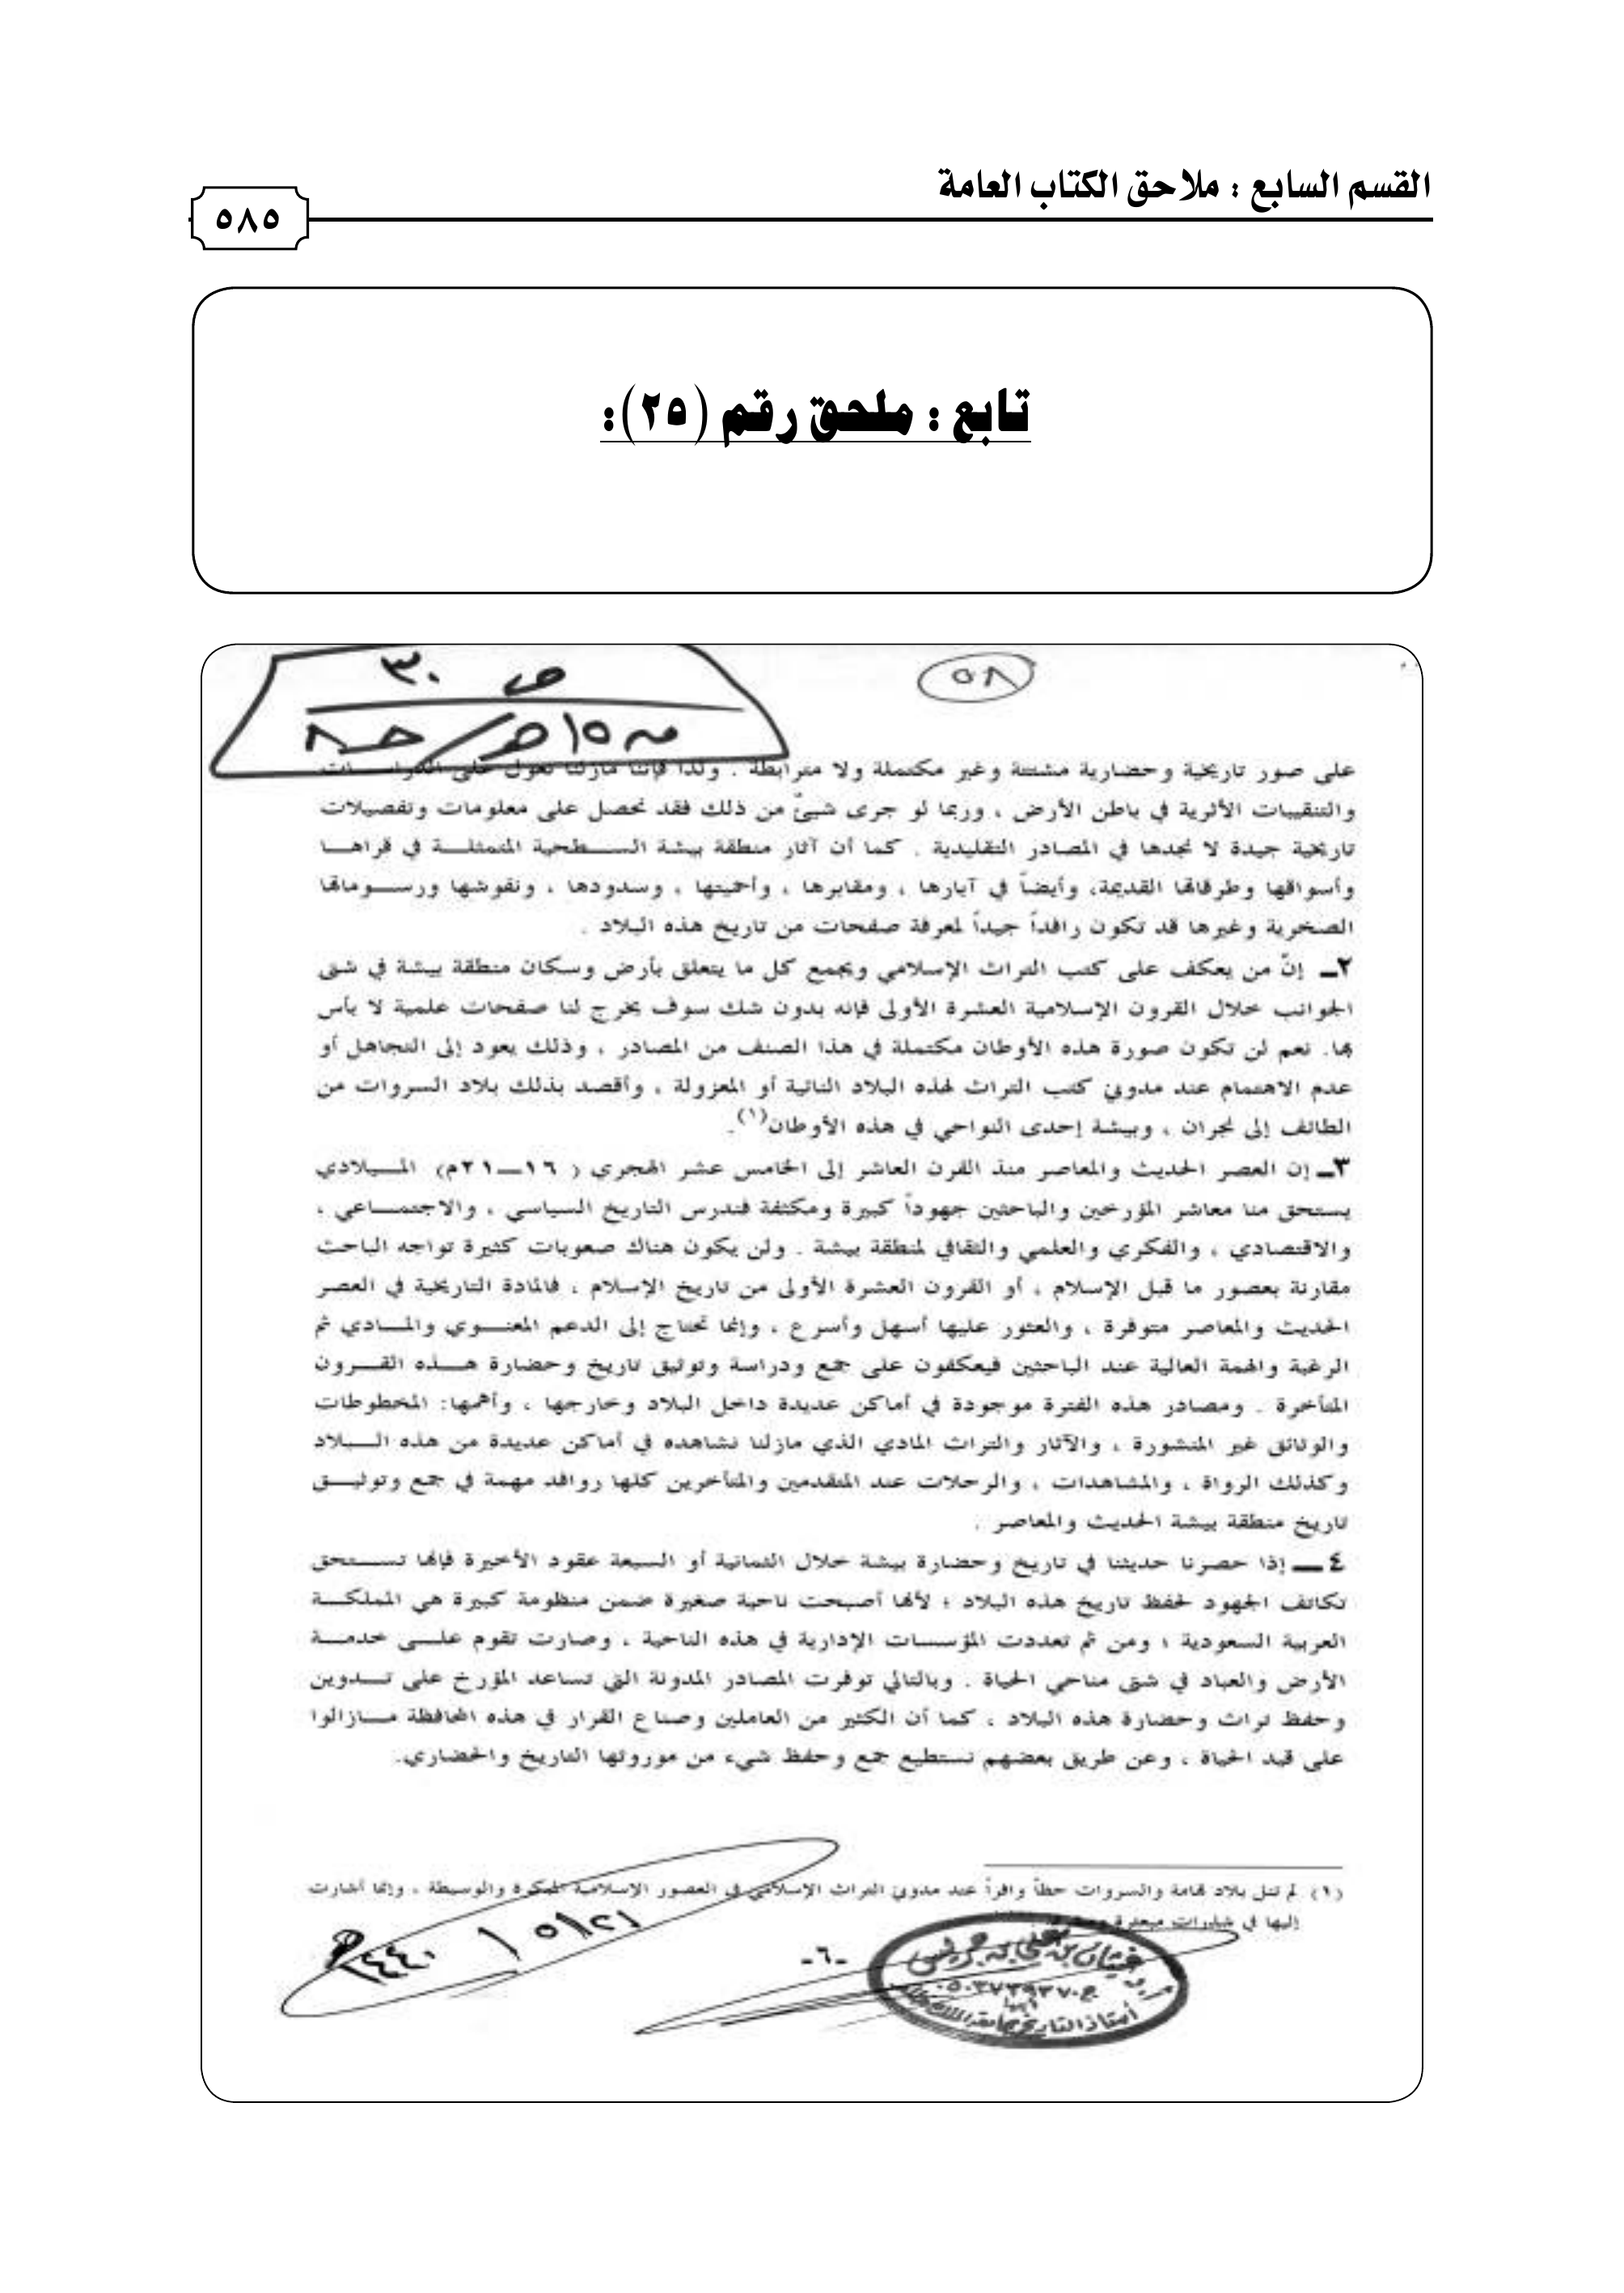 القسم السابع : ملاحق الكتاب العامة
٥٨٥
تابع : ملحق رقم (٢٥):
٥٨
ص ٣٠
حـ٨
على صور تاريخية وحضارية مشتتة وغير مكتملة ولا مترابطة . ولذا فإننا مازلنا نعول على
والتنقيبات الأثرية في باطن الأرض ، وربما لو جرى شيئ من ذلك فقد نحصل على معلومات وتفصيلات
تاريخية جيدة لا نجدها في المصادر التقليدية . كما أن آثار منطقة بيشة السـطحية المتمثلـة في قراهـا
وأسواقها وطرقاتها القديمة، وأيضاً في آبارها ، ومقابرها ، وأحميتها ، وسدودها ، ونقوشها ورسـوماتها
الصخرية وغيرها قد تكون رافداً جيداً لمعرفة صفحات من تاريخ هذه البلاد .
٢ـ إنّ من يعكف على كتب التراث الإسلامي ويجمع كل ما يتعلق بأرض وسكان منطقة بيشة في شتى
الجوانب خلال القرون الإسلامية العشرة الأولى فإنه بدون شك سوف يخرج لنا صفحات علمية لا بأس
بها. نعم لن تكون صورة هذه الأوطان مكتملة في هذا الصنف من المصادر ، وذلك يعود إلى التجاهل أو
عدم الاهتمام عند مدوني كتب التراث لهذه البلاد النائية أو المعزولة ، وأقصد بذلك بلاد السروات من
الطائف إلى نجران ، وبيشة إحدى النواحي في هذه الأوطان(١).
٣ـ إن العصر الحديث والمعاصر منذ القرن العاشر إلى الخامس عشر الهجري ( ١٦ــ٢١م) المـيلادي
يستحق منا معاشر المؤرخين والباحثين جهوداً كبيرة ومكثفة فندرس التاريخ السياسي ، والاجتمـاعي ،
والاقتصادي ، والفكري والعلمي والثقافي لمنطقة بيشة . ولن يكون هناك صعوبات كثيرة تواجه الباحث
مقارنة بعصور ما قبل الإسلام ، أو القرون العشرة الأولى من تاريخ الإسلام ، فالمادة التاريخية في العصر
الحديث والمعاصر متوفرة ، والعثور عليها أسهل وأسرع ، وإنما تحتاج إلى الدعم المعنـوي والمـادي ثم
الرغبة والهمة العالية عند الباحثين فيعكفون على جمع ودراسة وتوثيق تاريخ وحضارة هـذه القـرون
المتأخرة . ومصادر هذه الفترة موجودة في أماكن عديدة داخل البلاد وخارجها ، وأهمها: المخطوطات
والوثائق غير المنشورة ، والآثار والتراث المادي الذي مازلنا نشاهده في أماكن عديدة من هذه الـبلاد
وكذلك الرواة ، والمشاهدات ، والرحلات عند المتقدمين والمتأخرين كلها روافد مهمة في جمع وتوثيـق
تاريخ منطقة بيشة الحديث والمعاصر .
٤ــ إذا حصرنا حديثنا في تاريخ وحضارة بيشة خلال الثمانية أو السبعة عقود الأخيرة فإنها تسـتحق
تكاتف الجهود لحفظ تاريخ هذه البلاد ؛ لأنها أصبحت ناحية صغيرة ضمن منظومة كبيرة هي المملكـة
العربية السعودية ؛ ومن ثم تعددت المؤسسات الإدارية في هذه الناحية ، وصارت تقوم علـى خدمـة
الأرض والعباد في شتى مناحي الحياة . وبالتالي توفرت المصادر المدونة التي تساعد المؤرخ على تـدوين
وحفظ تراث وحضارة هذه البلاد ، كما أن الكثير من العاملين وصناع القرار في هذه المحافظة مـازالوا
على قيد الحياة ، وعن طريق بعضهم نستطيع جمع وحفظ شيء من موروثها التاريخ والحضاري.
(١) لم تنل بلاد تهامة والسروات حظاً وافراً عند مدوني التراث الإسلامي في العصور الإسلامية المبكرة والوسيطة ، وإنما أشارت
إليها في شذرات مبعثرة
١٤٤٠/٥/٢١هـ
-٦-
غيثان بن علي بن جريس
أستاذ التاريخ بجامعة الملك خالد